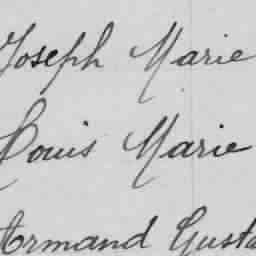 Joseph Marie
Louis Marie
Armand Gusta